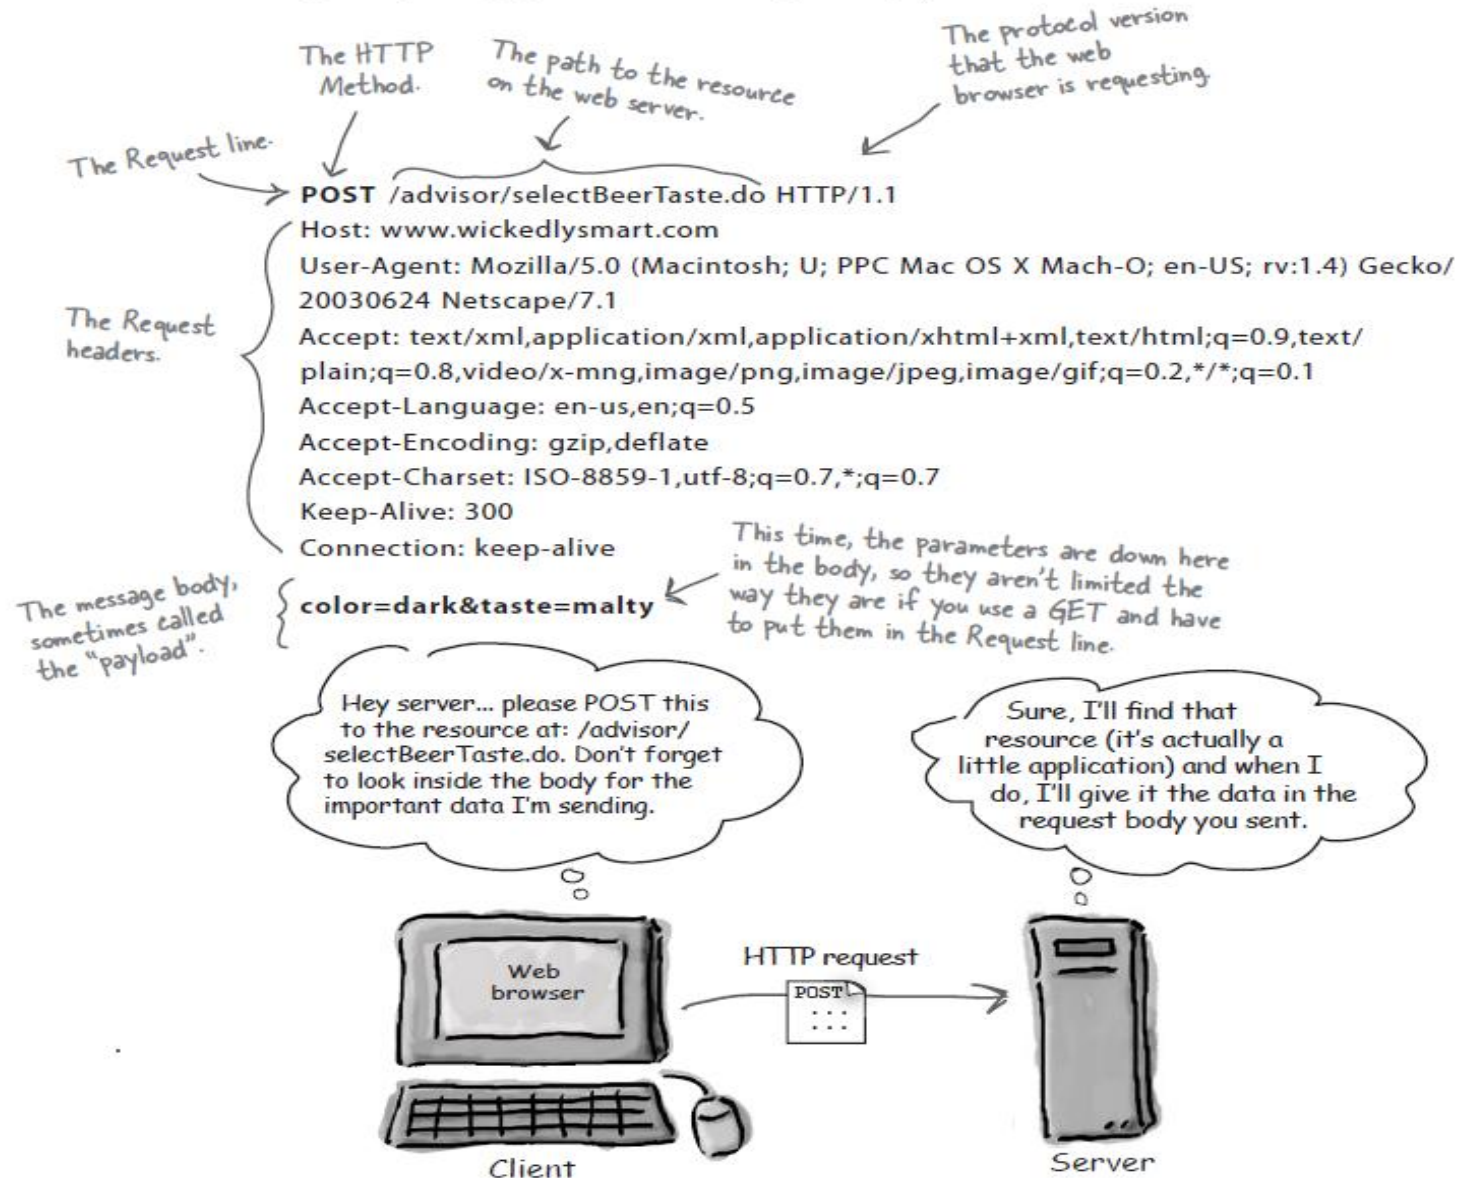 The HTTP
Method.
The path to the resource
on the web server.
The protocol version
that the web
browser is requesting.
The Request line.
POST /advisor/selectBeerTaste.do HTTP/1.1
Host: www.wickedlysmart.com
User-Agent: Mozilla/5.0 (Macintosh; U; PPC Mac OS X Mach-O; en-US; rv:1.4) Gecko/
20030624 Netscape/7.1
Accept: text/xml,application/xml,application/xhtml+xml,text/html;q=0.9,text/
plain;q=0.8,video/x-mng,image/png,image/jpeg,image/gif;q=0.2,*/*;q=0.1
Accept-Language: en-us,en;q=0.5
Accept-Encoding: gzip,deflate
Accept-Charset: ISO-8859-1,utf-8;q=0.7,*;q=0.7
Keep-Alive: 300
Connection: keep-alive
The Request
headers.
color=dark&taste=malty
The message body,
sometimes called
the "payload".
This time, the parameters are down here
in the body, so they aren't limited the
way they are if you use a GET and have
to put them in the Request line.
Hey server... please POST this
to the resource at: /advisor/
selectBeerTaste.do. Don't forget
to look inside the body for the
important data I'm sending.
Sure, I'll find that
resource (it's actually a
little application) and when I
do, I'll give it the data in the
request body you sent.
Web
browser
HTTP request
POST
Client
Server